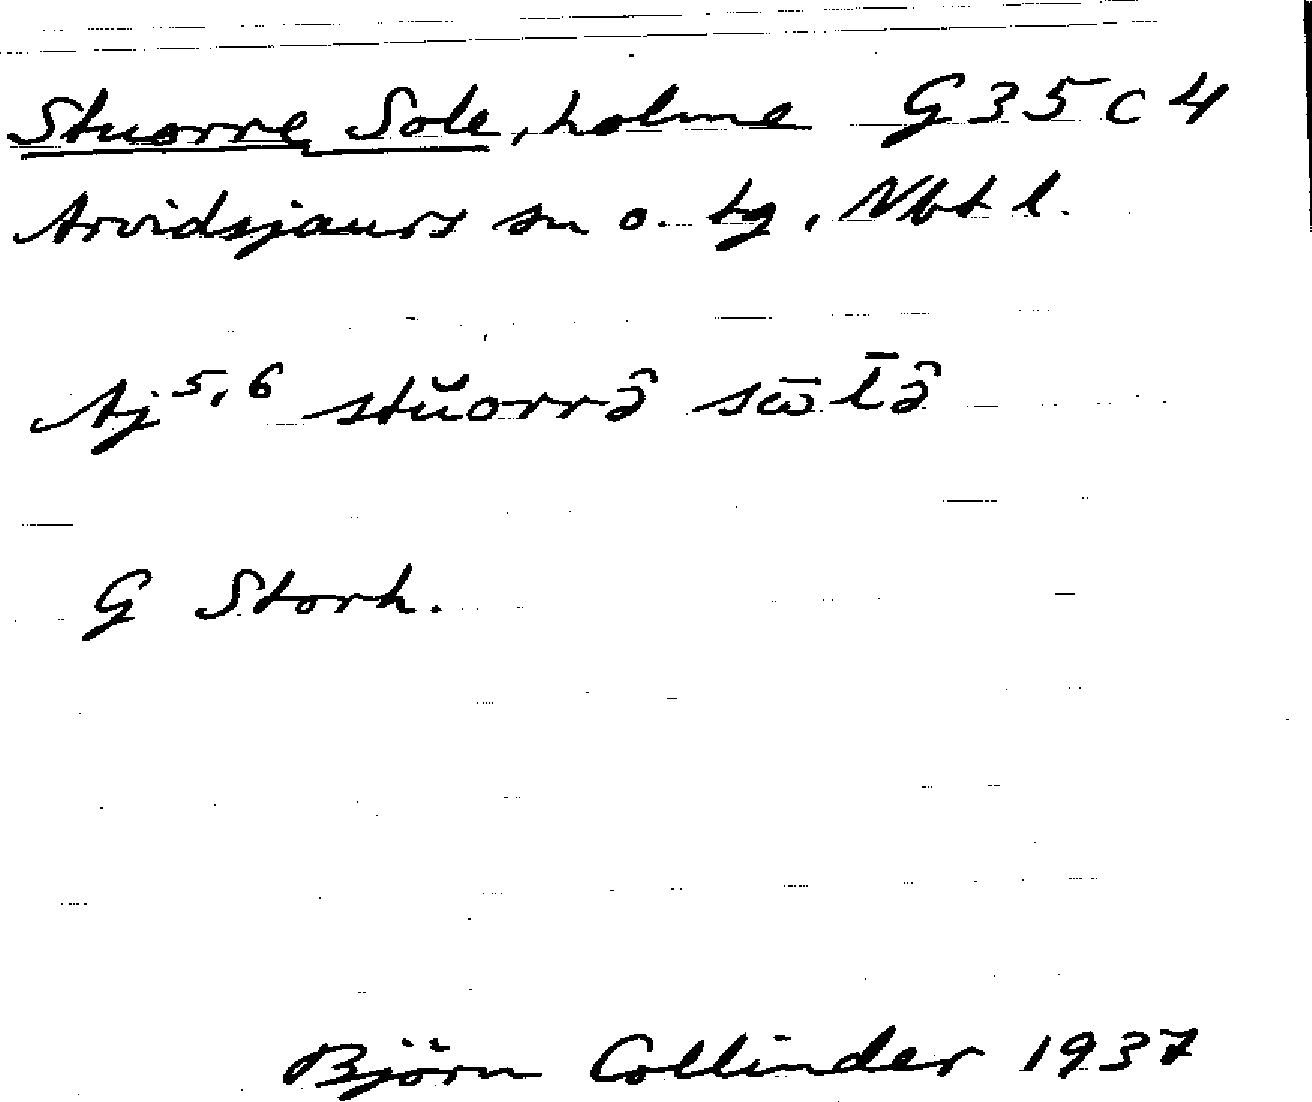 Stuorre Sole, holme G35c4
Arvidsjaurs sn o. tg, Nbt l.
Aj⁵,⁶ stŭorrə̂ sɷ̄l̄ə̂
G Stork.
Björn Collinder 1937